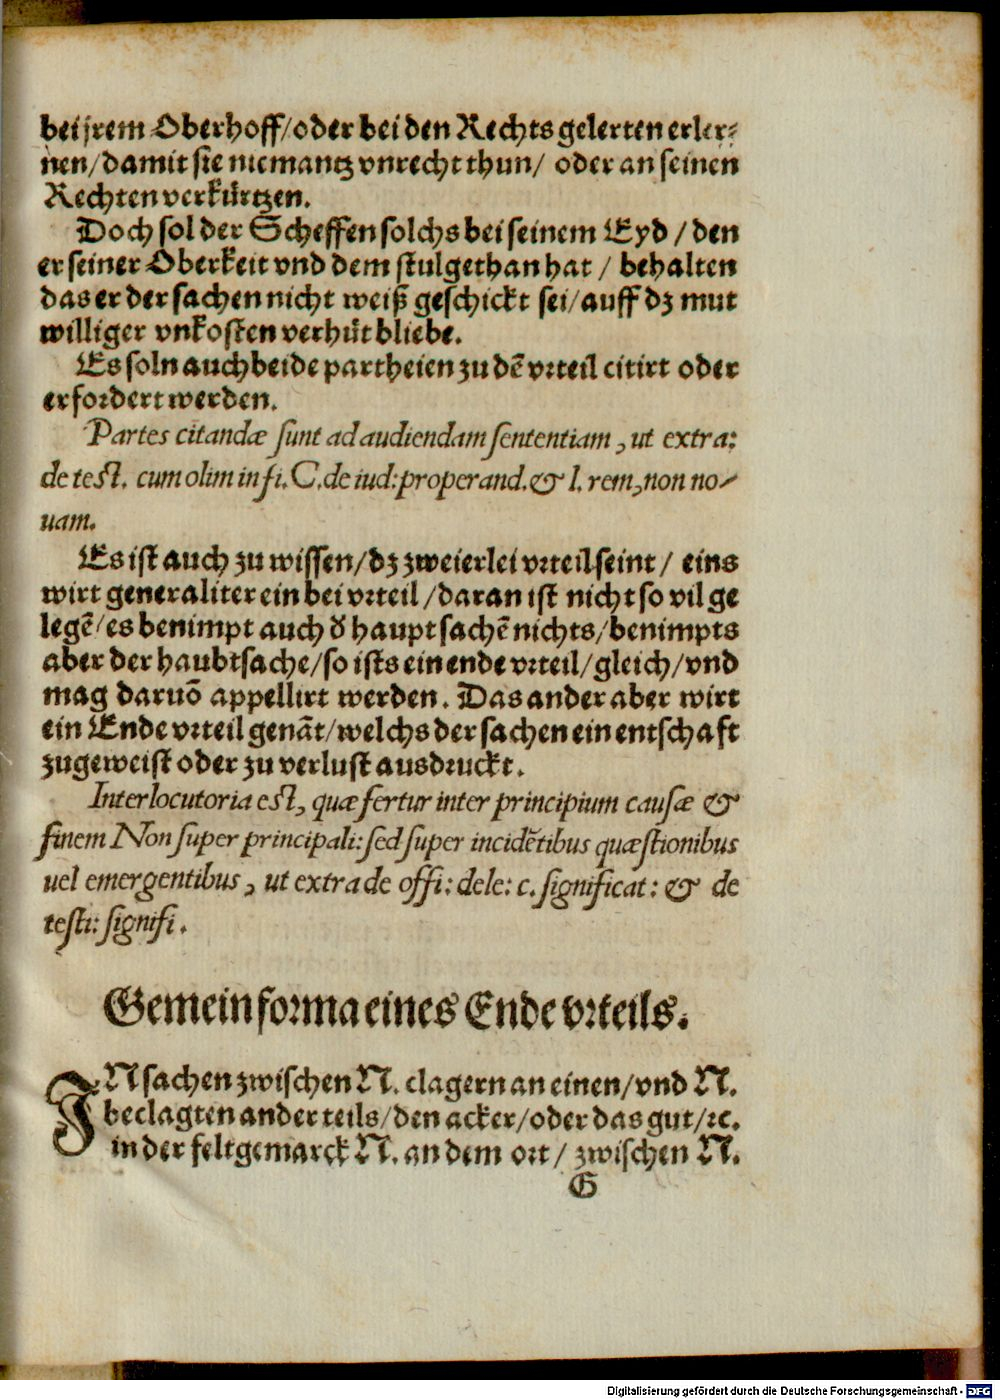 bei jrem Oberhoff/oder bei den Rechts gelerten erler⸗
nen/damit sie niemantz vnrecht thun/ oder an seinen
Rechten verkuͤrtzen.
Doch sol der Scheffen solchs bei seinem Eyd / den
er seiner Oberkeit vnd dem stul gethan hat / behalten
das er der sachen nicht weiß geschickt sei/auff dz mut
williger vnkosten verhuͤt bliebe.
Es soln auch beide partheien zu dē vrteil citirt oder
erfordert werden.
Partes citandæ sunt ad audiendam sententiam, ut extra:
de test. cum olim in fi. C. de iud: properand. & l. rem, non no-
uam.
Es ist auch zu wissen/dz zweierlei vrteil seint / eins
wirt generaliter ein bei vrteil /daran ist nicht so vil ge
legē/es benimpt auch ð haupt sachē nichts/benimpts
aber der haubtsache/so ists ein ende vrteil/gleich/vnd
mag daruō appellirt werden. Das ander aber wirt
ein Ende vrteil genāt/welchs der sachen ein entschafft
zugeweist oder zu verlust ausdruckt.
Interlocutoria est, quæ fertur inter principium causæ &
finem Non super principali: sed super incidētibus quæstionibus
uel emergentibus, ut extra de offi: dele: c. significat: & de
testi: signifi.
Gemein forma eines Ende vrteils.
IN sachen zwischen N. clagern an einen/vnd N.
beclagten ander teils/den acker/oder das gut/ꝛc.
in der feltgemarck N. an dem ort/ zwischen N.
G
Digitalisierung gefördert durch die Deutsche Forschungsgemeinschaft - DFG